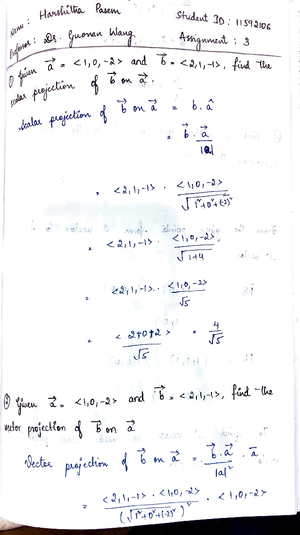 Name : Harshitha Pasem
Student ID : 11592106
Professor : Dr. Guonan Wang
Assignment : 3
① Given a⃗ = <1,0,-2> and b⃗ = <2,1,-1>, find the
scalar projection of b⃗ on a⃗.
Scalar projection of b⃗ on a⃗ = b · â
= b⃗ · a⃗ / |a|
= <2,1,-1> · <1,0,-2> / √1²+0²+(-2)²
= <2,1,-1> · <1,0,-2> / √1+4
= <2,1,-1> · <1,0,-2> / √5
= <2+0+2> / √5 = 4 / √5
② Given a⃗ = <1,0,-2> and b⃗ = <2,1,-1>, find the
vector projection of b⃗ on a⃗
Vector projection of b⃗ on a⃗ = b⃗ · a⃗ / |a|² · a⃗
= <2,1,-1> · <1,0,-2> / (√1²+0²+(-2)²)² · <1,0,-2>